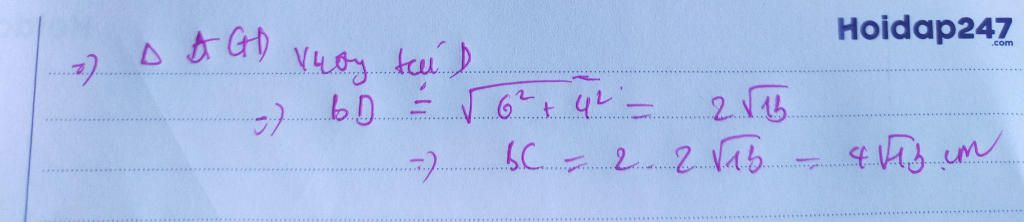 Hoidap247
.com
=) Δ AGD vuông tại D
=) bD = √6² + 4² = 2√13
=) bC = 2 . 2√13 = 4√13 cm